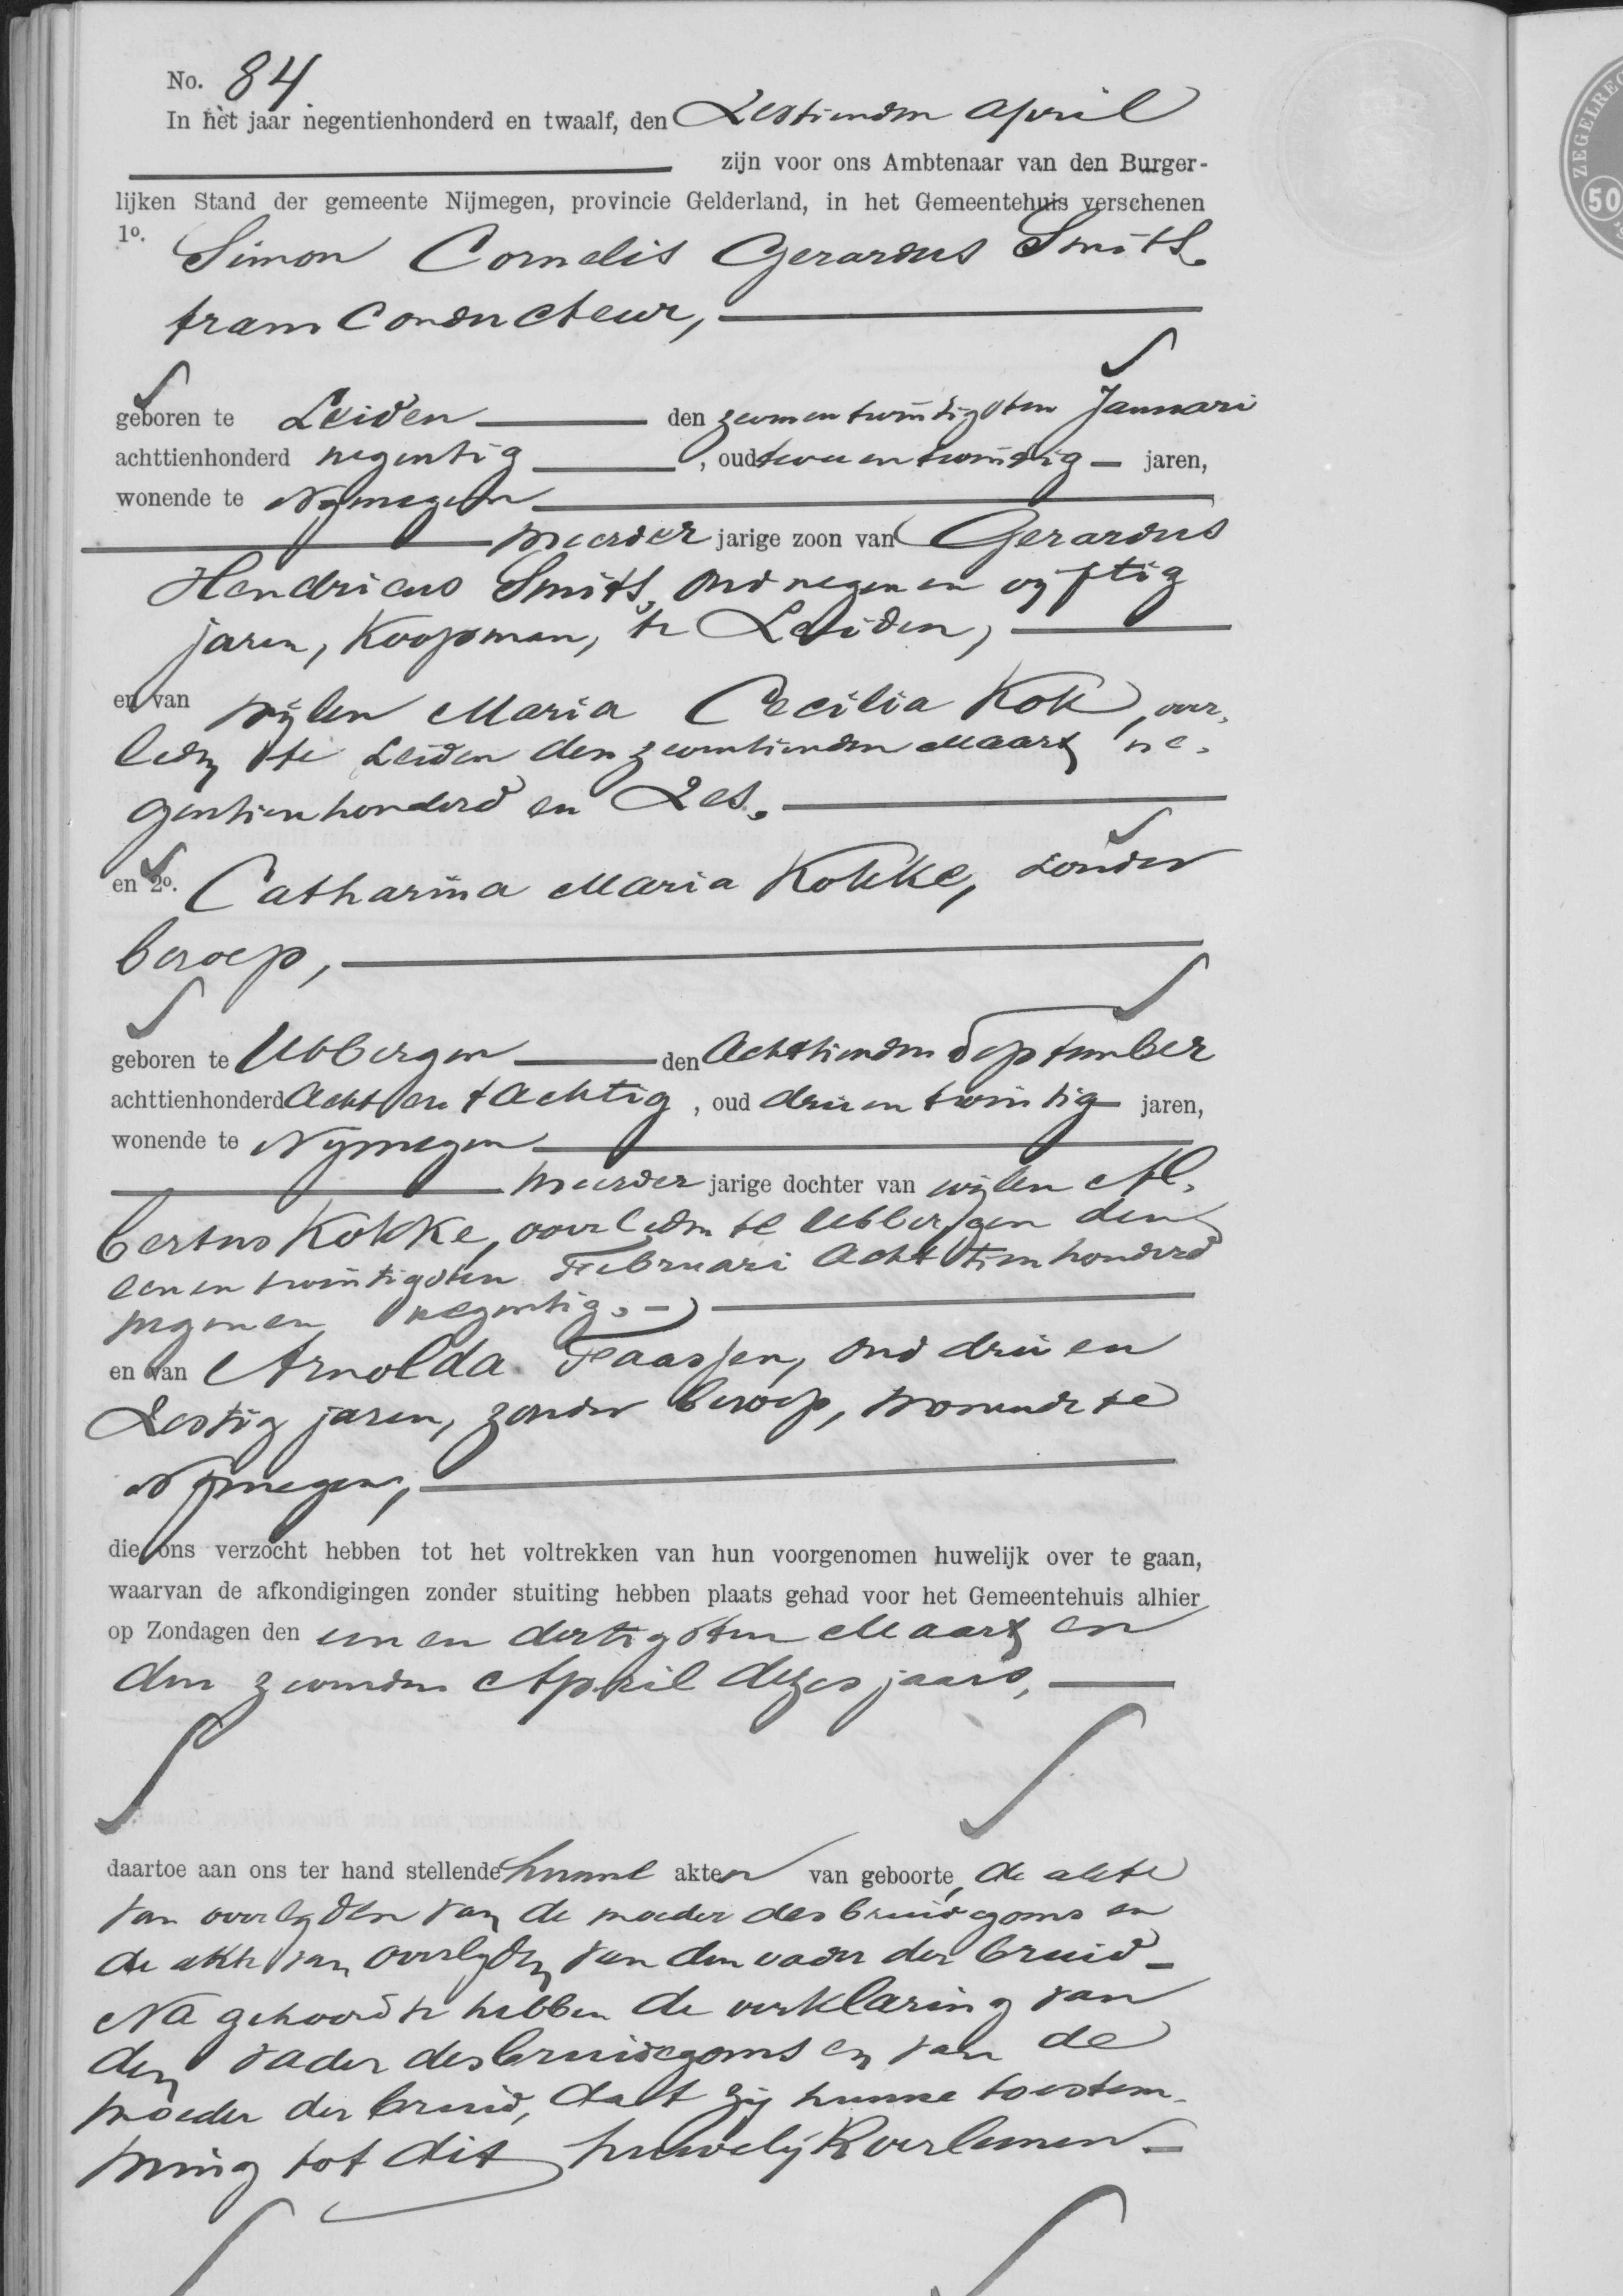 No. 84
In het jaar negentienhonderd en twaalf, den Zestienden April
zijn voor ons Ambtenaar van den Burger-
lijken Stand der gemeente Nijmegen, provincie Gelderland, in het Gemeentehuis verschenen
1o. Simon Cornelis Gerardus Smits,
tramconducteur,
geboren te Leiden den zevenentwintigsten Januari
achttienhonderd negentig, oud tweeentwintig jaren,
wonende te Nijmegen
meerder jarige zoon van Gerardus
Hendricus Smits, oud negenenvijftig
jaren, koopman, te Leiden,
en van wijlen Maria Cecilia Kok, over-
leden te Leiden den zeventienden Maart ne-
gentienhonderd en Zes.
en 2o. Catharina Maria Kokke, zonder
beroep,
geboren te Ubbergen den Achttienden September
achttienhonderd Achtentachtig, oud drieentwintig jaren,
wonende te Nijmegen
meerder jarige dochter van wijlen Al-
bertus Kokke, overleden te Ubbergen den
eenentwintigsten Februari Achttienhonderd
negenen negentig.
en van Arnolda Faassen, oud drieen
Zestig jaren, zonder beroep, wonende te
Nijmegen,
die ons verzocht hebben tot het voltrekken van hun voorgenomen huwelijk over te gaan,
waarvan de afkondigingen zonder stuiting hebben plaats gehad voor het Gemeentehuis alhier
op Zondagen den eenendertigsten Maart en
den zevenden April dezes jaars,
daartoe aan ons ter hand stellende hunne akten van geboorte, de akte
van overlijden van de moeder des bruidegoms en
de akte van overlijden van den vader der bruid_
Na gehoord te hebben de verklaring van
den vader des bruidegoms en van de
moeder der bruid, dat zij hunne toestem-
ming tot dit huwelijk verleenen_
ZEGELRE
50